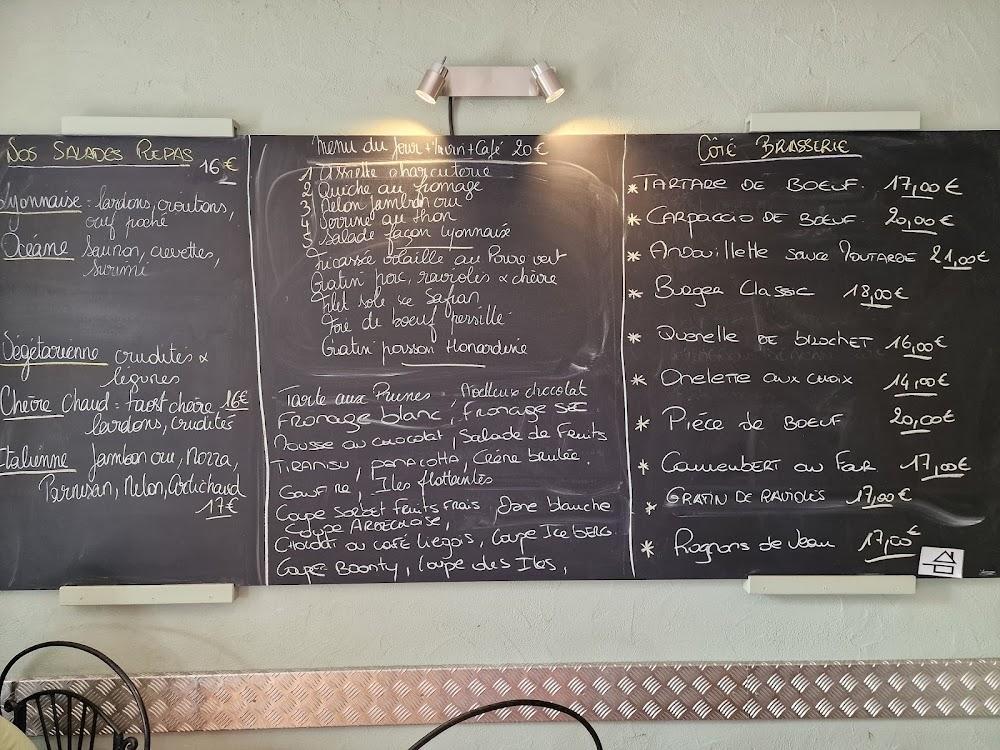 NOS SALADES REPAS
16€
Lyonnaise = lardons, croutons,
œuf poché
Océane Saumon, crevettes,
Surimi
Végétarienne crudités &
légumes
Chèvre Chaud = toast chèvre 16€
lardons, crudités
Italienne Jambon cru, Mozza,
Parmesan, Melon, Artichaud
17€
Menu du Jour + 1/4 vin + Café 20€
1 Assiette charcuterie
2 Quiche au fromage
3 Melon jambon cru
4 Verrine au thon
5 Salade façon lyonnaise
Fricassée volaille au Poivre vert
Gratin porc, ravioles & chèvre
Filet sole sce Safran
Foie de boeuf persillé
Gratin poisson
Tarte aux Prunes, Moelleux chocolat
Fromage blanc, Fromage sec
Mousse au chocolat, Salade de Fruits
Tiramisu, panacotta, Crème brulée.
Gaufre, Iles flottantes
Coupe Sorbet Fruits Frais, Dame blanche
Coupe Ardechoise,
Chocolat ou café liégois, Coupe Iceberg.
Coupe Boonty, Coupe des Iles,
CÔTÉ BRASSERIE
* TARTARE DE BOEUF. 17,00€
* CARPACCIO DE BOEUF. 20,00€
* Andouillette sauce MOUTARDE 21,00€
* Burger Classic 18,00€
* Quenelle DE BROCHET 16,00€
* Omelette aux choix 14,00€
* Pièce de BOEUF 20,00€
* Camembert au Four 17,00€
* GRATIN DE RAVIOLES 17,00€
* Rognons de Veau 17,00€